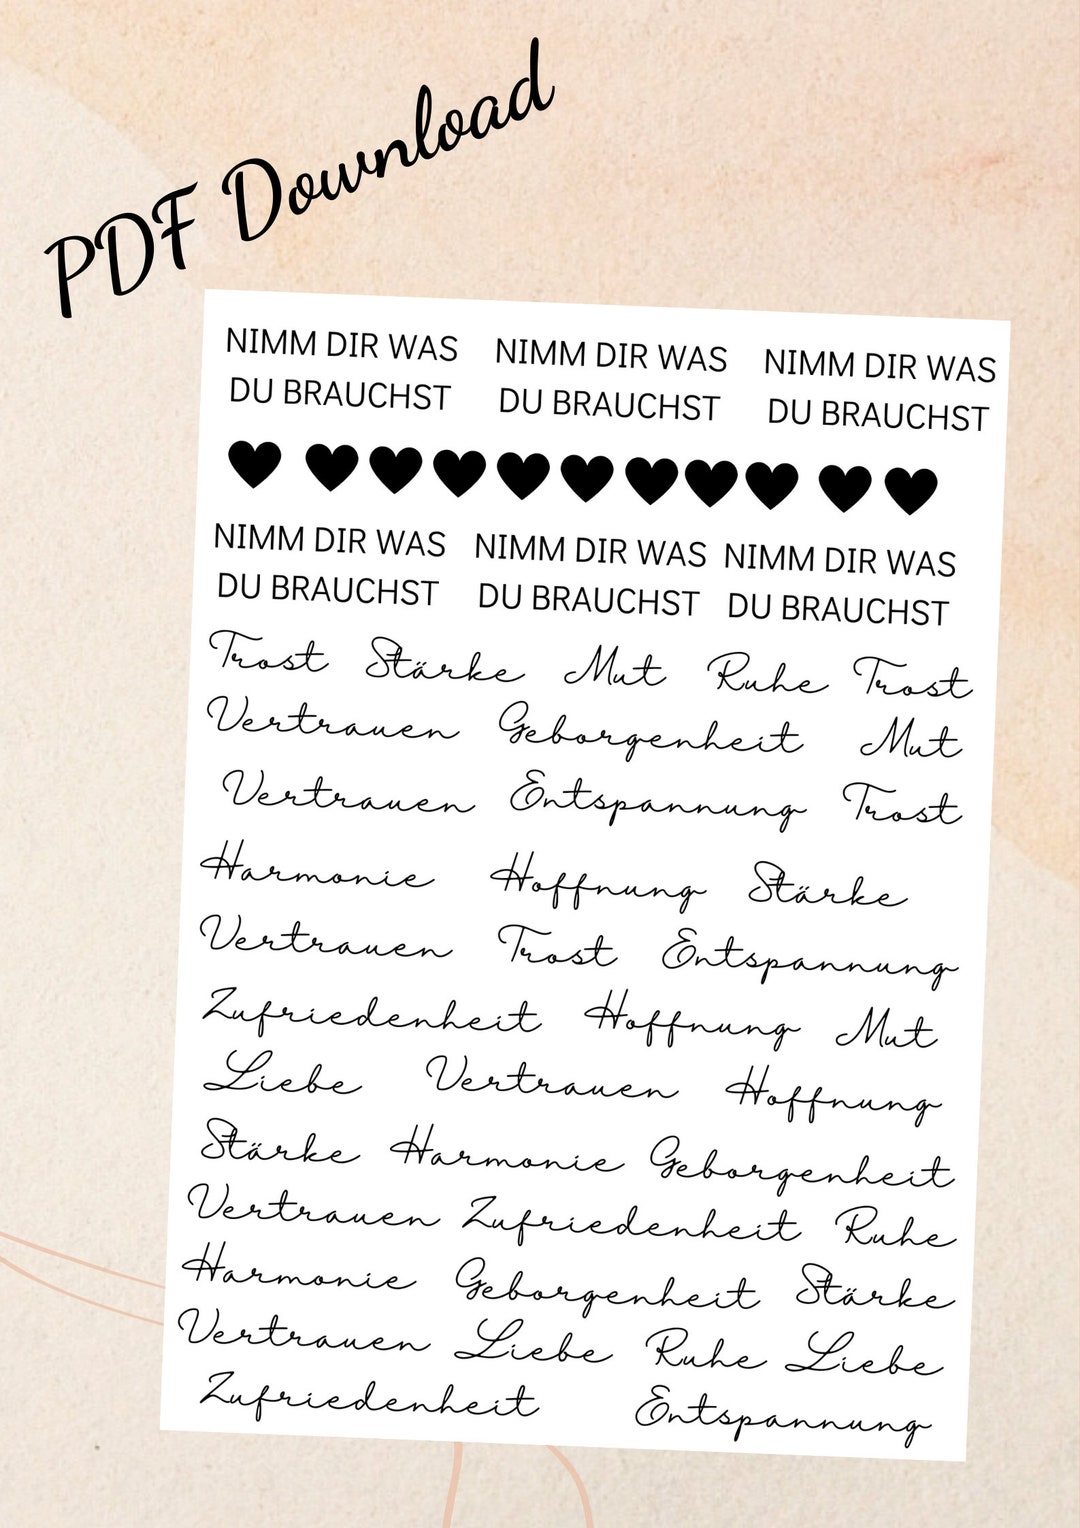 PDF Download
NIMM DIR WAS NIMM DIR WAS NIMM DIR WAS
DU BRAUCHST DU BRAUCHST DU BRAUCHST
NIMM DIR WAS NIMM DIR WAS NIMM DIR WAS
DU BRAUCHST DU BRAUCHST DU BRAUCHST
Trost Stärke Mut Ruhe Trost
Vertrauen Geborgenheit Mut
Vertrauen Entspannung Trost
Harmonie Hoffnung Stärke
Vertrauen Trost Entspannung
Zufriedenheit Hoffnung Mut
Liebe Vertrauen Hoffnung
Stärke Harmonie Geborgenheit
Vertrauen Zufriedenheit Ruhe
Harmonie Geborgenheit Stärke
Vertrauen Liebe Ruhe Liebe
Zufriedenheit Entspannung